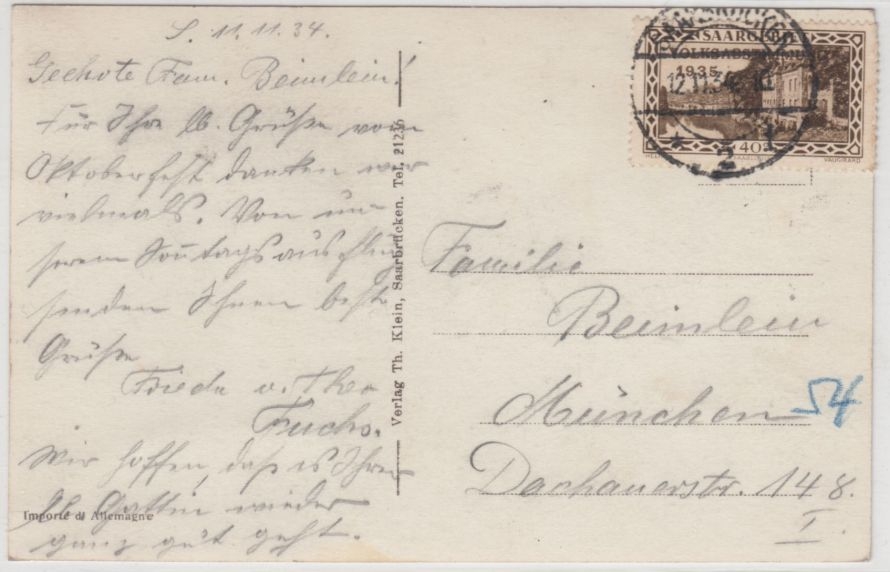 S. 11.11.34.
Geehrte Fam. Beimlein!
Für Ihre lb. Grüße vom
Oktoberfest danken wir
vielmals. Von un-
serem Sonntagsausflug
senden Ihnen beste
Grüße
Frieda u. Theo
Fuchs.
Wir hoffen, daß es Ihrer
lb. Gattin wieder
ganz gut geht.
Importé d'Allemagne
Verlag Th. Klein, Saarbrücken. Tel. 21236
SAARGEBIET
VOLKSABSTIMMUNG
1935
40
VAUGIRARD
SAARBRÜCKEN
12.11.34
* 2
Familie
Beimlein
München
54
Dachauerstr. 148.
I.